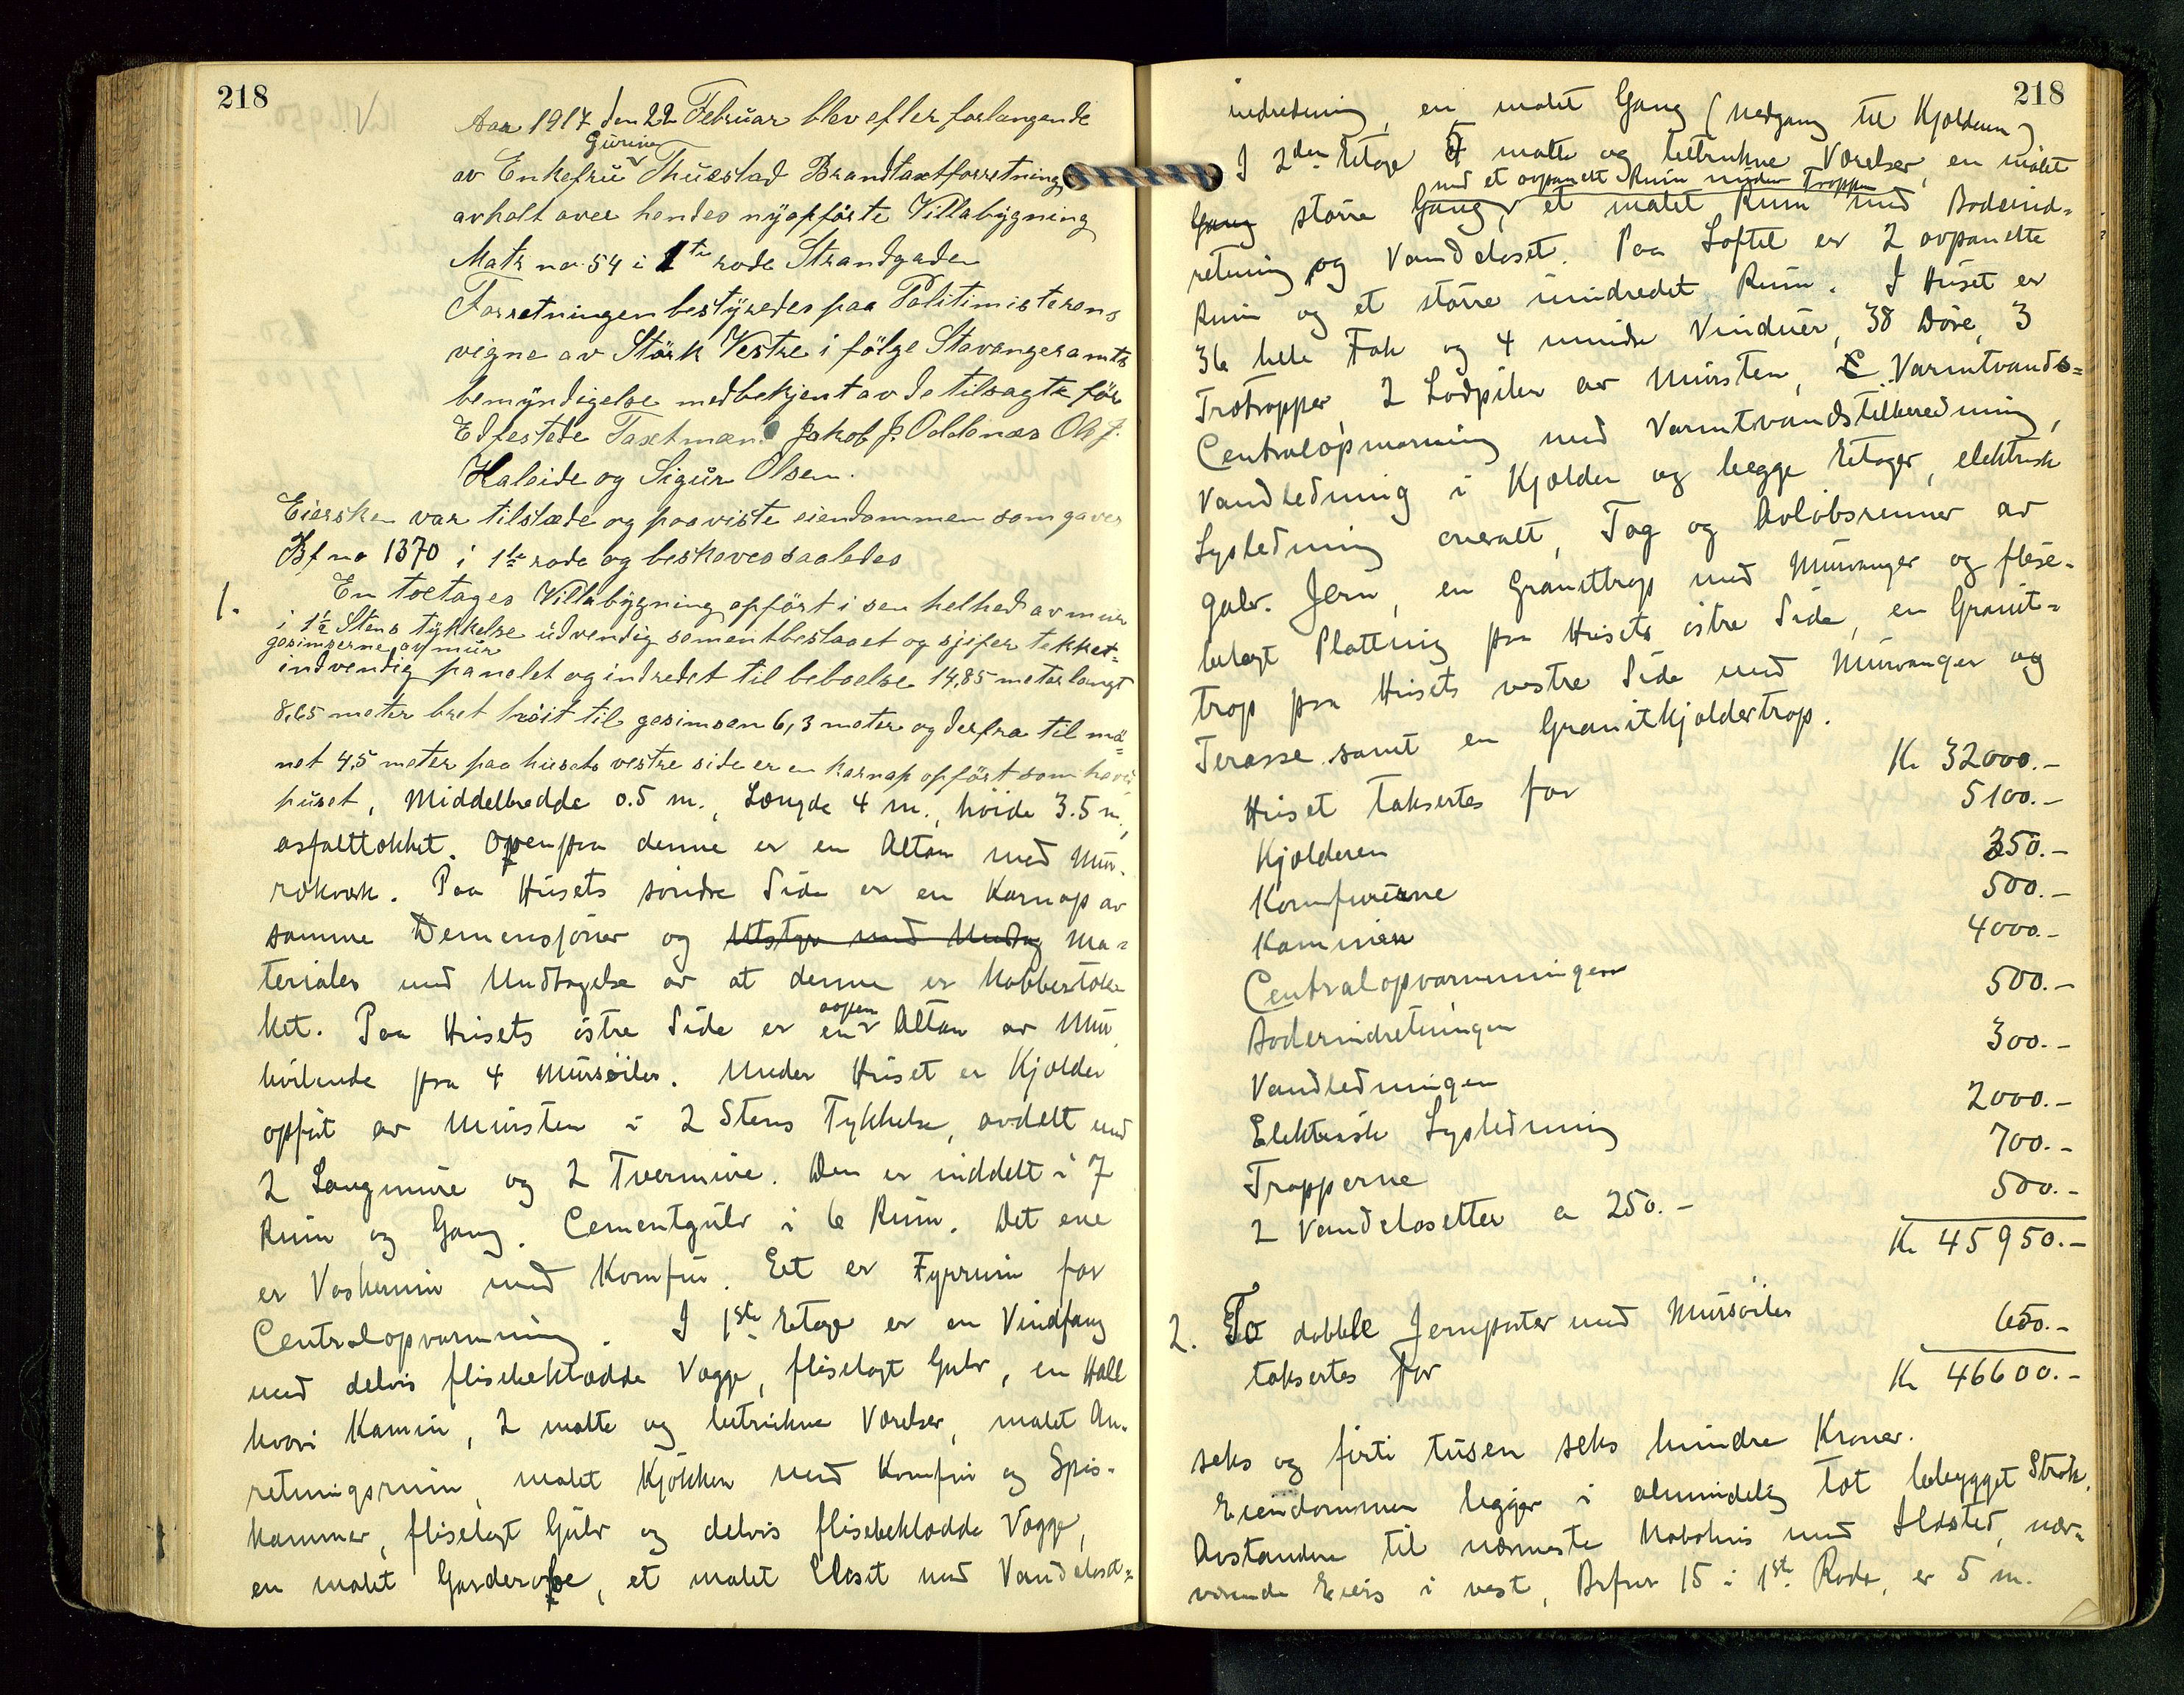 218
Aar 1917 den 22 Februar blev efter forlangende
Gurine
av Enkefru Thuestad Brandtaxtforretning
avholt over hendes nyopførte Villabygning
Matr no 54 i 1te rode Strandgaden
Forretningen bestyredes paa Politimisterens
vegne av Størk Vestre i følge Stavanger amts
bemyndigelse med bekjent av de tilsagte før
Edfestede Taxtmænd Jakob J. Oddenæs Ole J.
Haleide og Sigur Olsen.
Eiersken var tilstæde og paaviste eiendommen som gaves
Bf no 1370 i 1te rode og beskeves saaledes
1. En toetages Villabygning opført i sen helhed av mur
i 1½ Stens tykkelse udvendig sementbeslaaet og sjifer tekket
gesimserne av mur
indvendig panelet og indredet til beboelse 14,85 meter langt
8,65 meter bret høit til gesimsen 6,3 meter og derfra til mø=
net 4,5 meter paa husets vestre side er en karnap opført som hoved
huset, Middelbredde 0.5 m., Længde 4 m., høide 3.5 m.,
asfalttækket. Ovenpaa denne er en Altan med Mur-
rækværk. Paa Husets søndre Side er en Karnap av
samme Demensjoner og Utstyr med Undtag ma=
terialer med Undtagelse av at denne er kobbertæk
ket. Paa Husets østre Side er en Altan av Mur
aapen
hvilende paa 4 Mursøiler. Under Huset er Kjælder
opført av Mursten i 2 Stens Tykkelse, avdelt med
2 Langmure og 2 Tvermure. Den er inddelt i 7
Rum og Gang. Cementgulv i 6 Rum. Det ene
er Vaskerum med Komfur. Eet er Fyrrum for
Centralopvarmning. I 1ste Etage er en Vindfang
med delvis flisebeklædde Vægge, fliselagt Gulv, en Hall
hvori Kamin, 2 malte og betrukne Værelser, malet An-
retningsrum, malet Kjøkken med Komfur og Spis-
kammer, fliselagt Gulv og delvis flisebeklædde Vægge,
en malet Garderobe, et malet Closet med Vandclosét=
218
indredning, en malet Gang (Nedgang til Kjælderen)
I 2den Etage 5 malte og betrukne Værelser, en malet
med et avpanelt Rum under Trappen
Gang større Gang, et malet Rum med Badeind=
retning og Vandcloset. Paa Loftet er 2 avpanelte
Rum og et større uindredet Rum. I Huset er
36 hele Fak og 4 mindre Vinduer, 38 Døre, 3
Trætrapper 2 Lodpiber av Mursten, Varmtvands=
Centralopvarmning med Varmtvandstilberedning,
Vandledning i Kjælder og begge Etager, elektrisk
Lysledning overalt, Tag og Avløbsrenner av
galv. Jern, en Granittrap med Murvanger og flise-
belagt Platting paa Husets østre Side, en Granit=
trap paa Husets vestre Side med Murvanger og
Terasse samt en Granitkjældertrap.
Huset takseres for Kr 32000.-
Kjælderen 5100.-
Komfurerne 350.-
Kaminen 500.-
Centralopvarmningen 4000.-
Badeindretningen 500.-
Vandledningen 300.-
Elektrisk Lysledning 2000.-
Trapperne 700.-
2 Vandclosetter a 250.- 500.-
Kr 45950.-
2. To dobbelle Jernporter med Mursøiler
takseres for 650.-
Kr 46600.-
seks og førti tusen seks hundre Kroner.
Eiendommen ligger i almindelig tæt bebygget Strøk.
Avstanden til nærmeste Nabohus med Ildsted, nær=
værende Eiers i vest, Brfnr 15 i 1ste Rode, er 5 m.